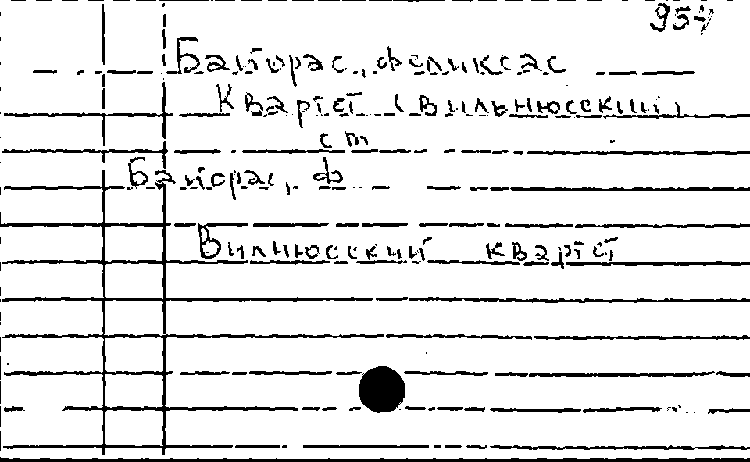 957
Байорас, Феликсас
Квартет (Вильнюсский)
ст
Байорас, Ф
Вилнюсский квартет